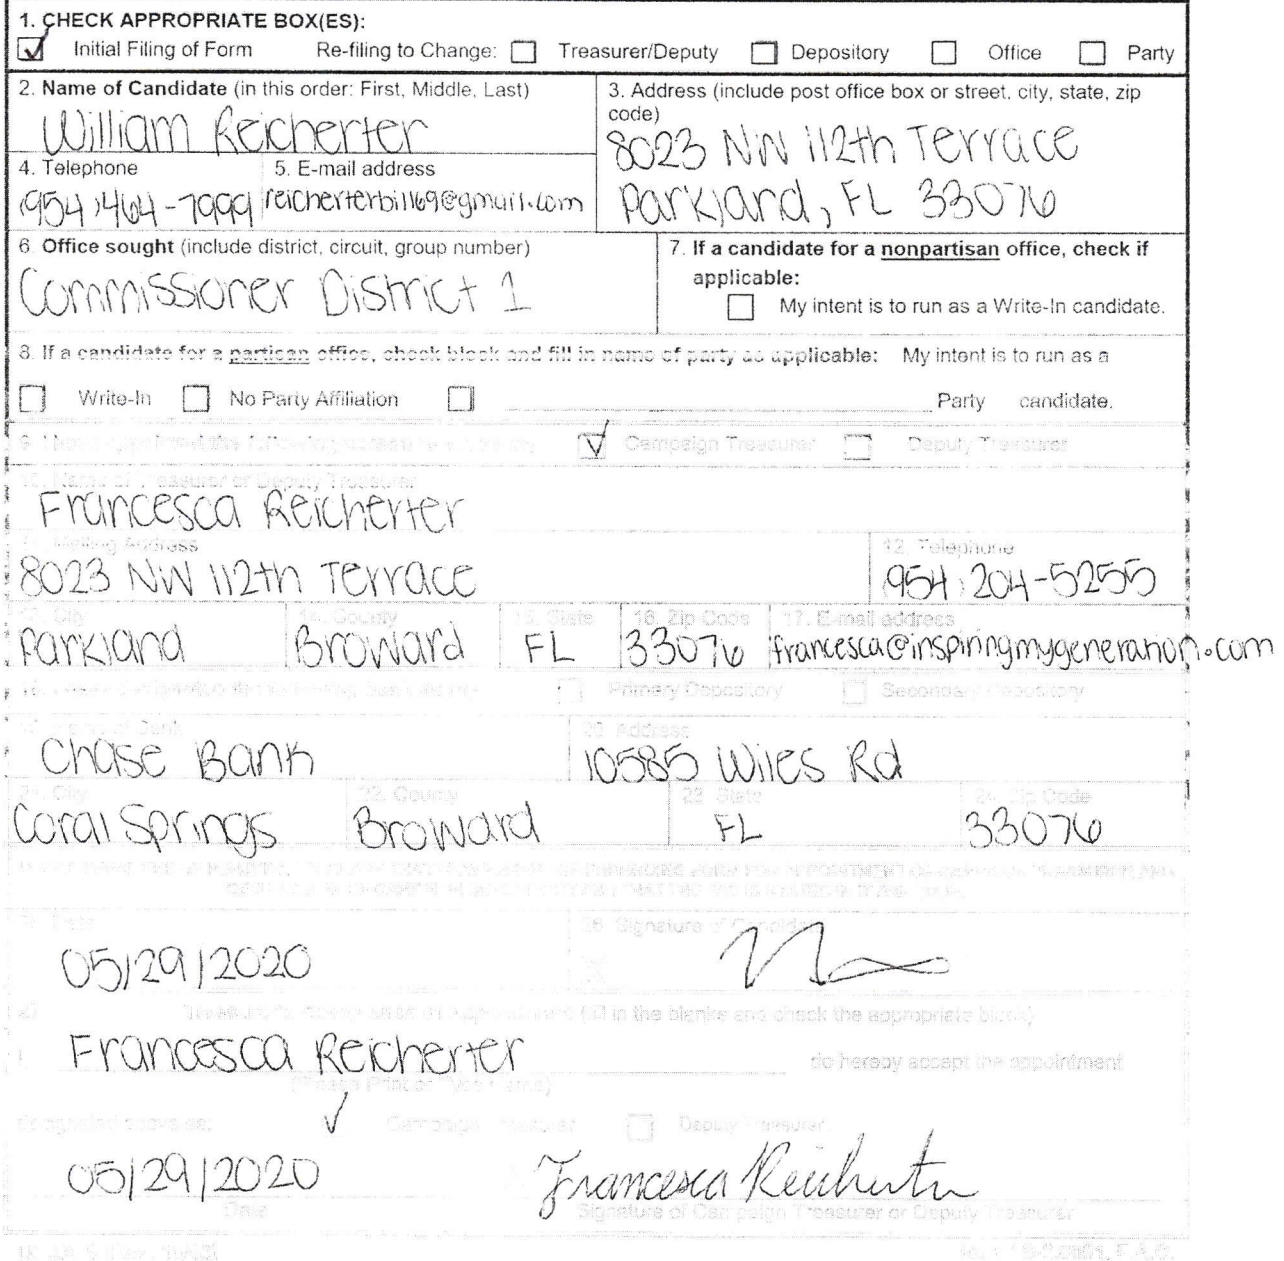 1. CHECK APPROPRIATE BOX(ES):
Initial Filing of Form Re-filing to Change: Treasurer/Deputy Depository Office Party
2. Name of Candidate (in this order: First, Middle, Last)
William Reicherter
3. Address (include post office box or street, city, state, zip code)
8023 NW 112th Terrace
Parkland, FL 33076
4. Telephone
(954) 464-7999
5. E-mail address
reicherterbill69@gmail.com
6. Office sought (include district, circuit, group number)
Commissioner District 1
7. If a candidate for a nonpartisan office, check if
applicable:
My intent is to run as a Write-In candidate.
8. If a candidate for a partisan office, check block and fill in name of party as applicable: My intent is to run as a
Write-In No Party Affiliation Party candidate.
Campaign Treasurer Deputy Treasurer
10. Name of Treasurer or Deputy Treasurer
Francesca Reicherter
11. Mailing Address
8023 NW 112th Terrace
12. Telephone
(954) 204-5255
13. City
Parkland
14. County
Broward
15. State
FL
16. Zip Code
33076
17. E-mail address
francesca@inspiringmygeneration.com
Primary Depository Secondary Depository
19. Name of Bank
Chase Bank
20. Address
10585 Wiles Rd
21. City
Coral Springs
22. County
Broward
23. State
FL
24. Zip Code
33076
25. Date
05/29/2020
26. Signature of Candidate
X
(fill in the blanks and check the appropriate block)
Francesca Reicherter
do hereby accept the appointment
(Please Print or Type Name)
designated above as: Campaign Treasurer Deputy Treasurer
05/29/2020
Francesca Reicherter
Date
Signature of Campaign Treasurer or Deputy Treasurer